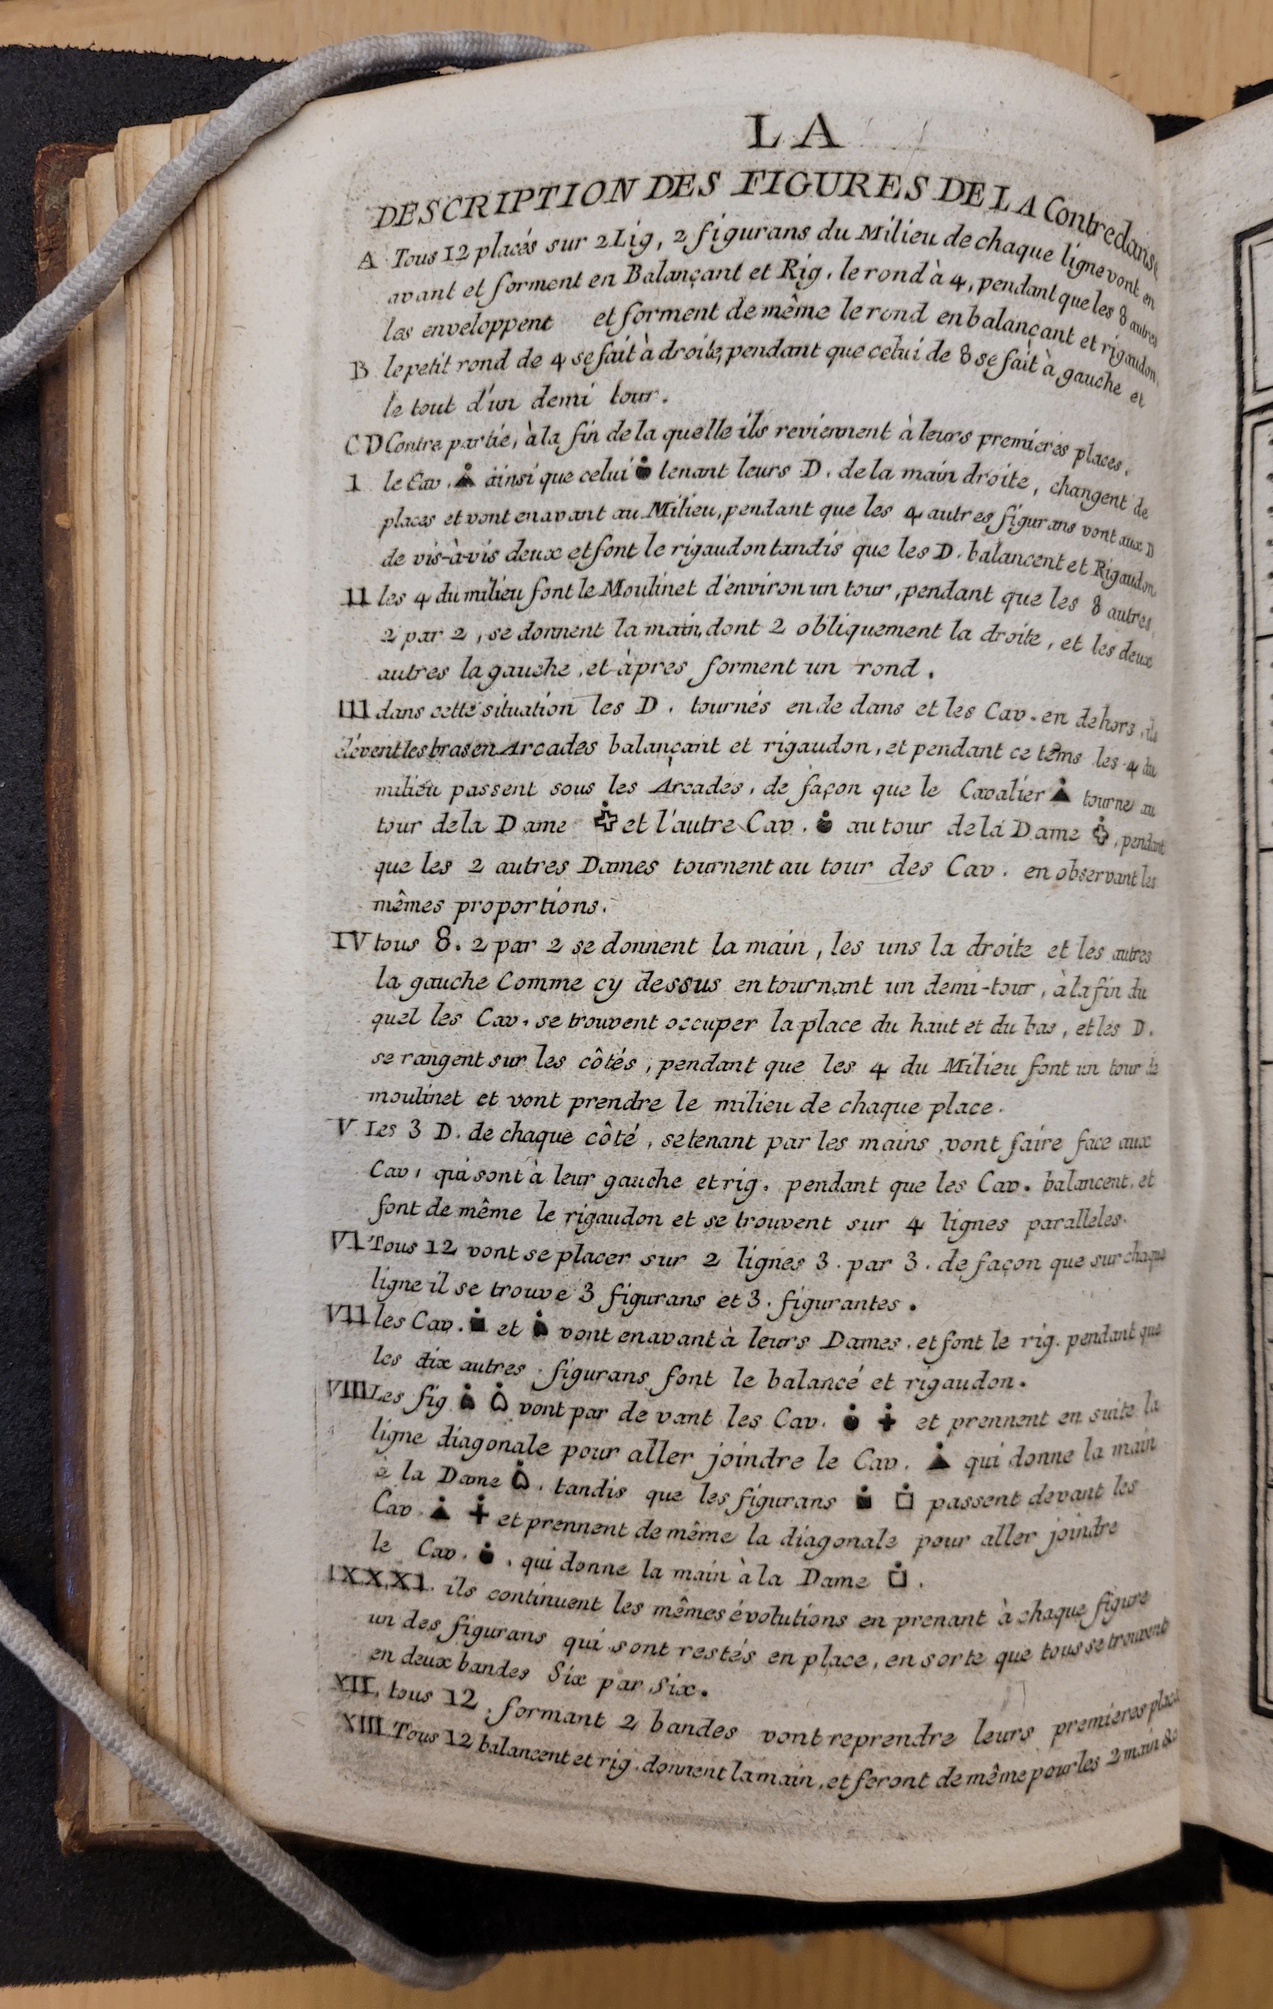 LA
DESCRIPTION DES FIGURES DE LA Contredanse
A Tous 12 placés sur 2 Lig, 2 figurans du Milieu de chaque ligne vont en
avant et forment en Balançant et Rig. le rond à 4, pendant que les 8 autres
les enveloppent et forment de même le rond en balançant et rigaudon,
B le petit rond de 4 se fait à droite, pendant que celui de 8 se fait à gauche et
le tout d'un demi tour.
CD Contre partie, à la fin de la quelle ils reviennent à leurs premieres places.
I le Cav. ainsi que celui tenant leurs D. de la main droite, changent de
places et vont en avant au Milieu, pendant que les 4 autres figurans vont aux D
de vis-à-vis deux et font le rigaudon tandis que les D. balancent et Rigaudon
II les 4 du milieu font le Moulinet d'environ un tour, pendant que les 8 autres,
2 par 2, se donnent la main, dont 2 obliquement la droite, et les deux
autres la gauche, et àpres forment un rond.
III dans cette situation les D. tournés en de dans et les Cav. en dehors, ils
élévent les bras en Arcades balançant et rigaudon, et pendant ce tems les 4 du
milieu passent sous les Arcades, de façon que le Cavalier tourne au
tour de la Dame et l'autre Cav. au tour de la Dame , pendant
que les 2 autres Dames tournent au tour des Cav. en observant les
mêmes proportions.
IV tous 8. 2 par 2 se donnent la main, les uns la droite et les autres
la gauche Comme cy dessus en tournant un demi-tour, à la fin du
quel les Cav. se trouvent occuper la place du haut et du bas, et les D.
se rangent sur les côtés, pendant que les 4 du Milieu font un tour de
moulinet et vont prendre le milieu de chaque place.
V Les 3 D. de chaque côté, se tenant par les mains, vont faire face aux
Cav, qui sont à leur gauche et rig. pendant que les Cav. balancent, et
font de même le rigaudon et se trouvent sur 4 lignes paralleles.
VI Tous 12 vont se placer sur 2 lignes 3. par 3. de façon que sur chaque
ligne il se trouve 3 figurans et 3. figurantes.
VII les Cav. et vont en avant à leurs Dames. et font le rig. pendant que
les dix autres figurans font le balancé et rigaudon.
VIII Les fig vont par de vant les Cav. et prennent en suite la
ligne diagonale pour aller joindre le Cav. qui donne la main
à la Dame . tandis que les figurans passent devant les
Cav. et prennent de même la diagonale pour aller joindre
le Cav. , qui donne la main à la Dame .
IX,X,XI. ils continuent les mêmes évolutions en prenant à chaque figure
un des figurans qui sont restés en place, en sorte que tous se trouvent
en deux bandes Six par Six.
XII, tous 12, formant 2 bandes vont reprendre leurs premieres places
XIII Tous 12 balancent et rig. donnent la main, et feront de même pour les 2 main &c